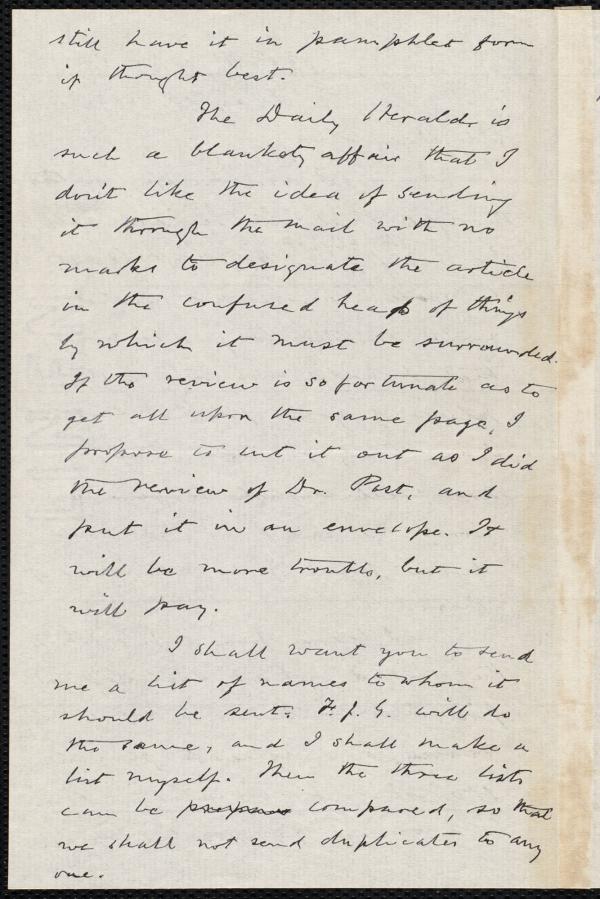 still have it in pamphlet form
if thought best.
The Daily Herald is
such a blankety affair that I
don't like the idea of sending
it through the mail with no
marks to designate the article
in the confused heap of things
by which it must be surrounded.
If the review is so fortunate as to
get all upon the same page, I
propose to cut it out as I did
the review of Dr. Post, and
put it in an envelope. It
will be more trouble, but it
will pay.
I shall want you to send
me a list of names to whom it
should be sent. F. J. G. will do
the same, and I shall make a
list myself. Then the three lists
can be prepared compared, so that
we shall not send duplicates to any
one.